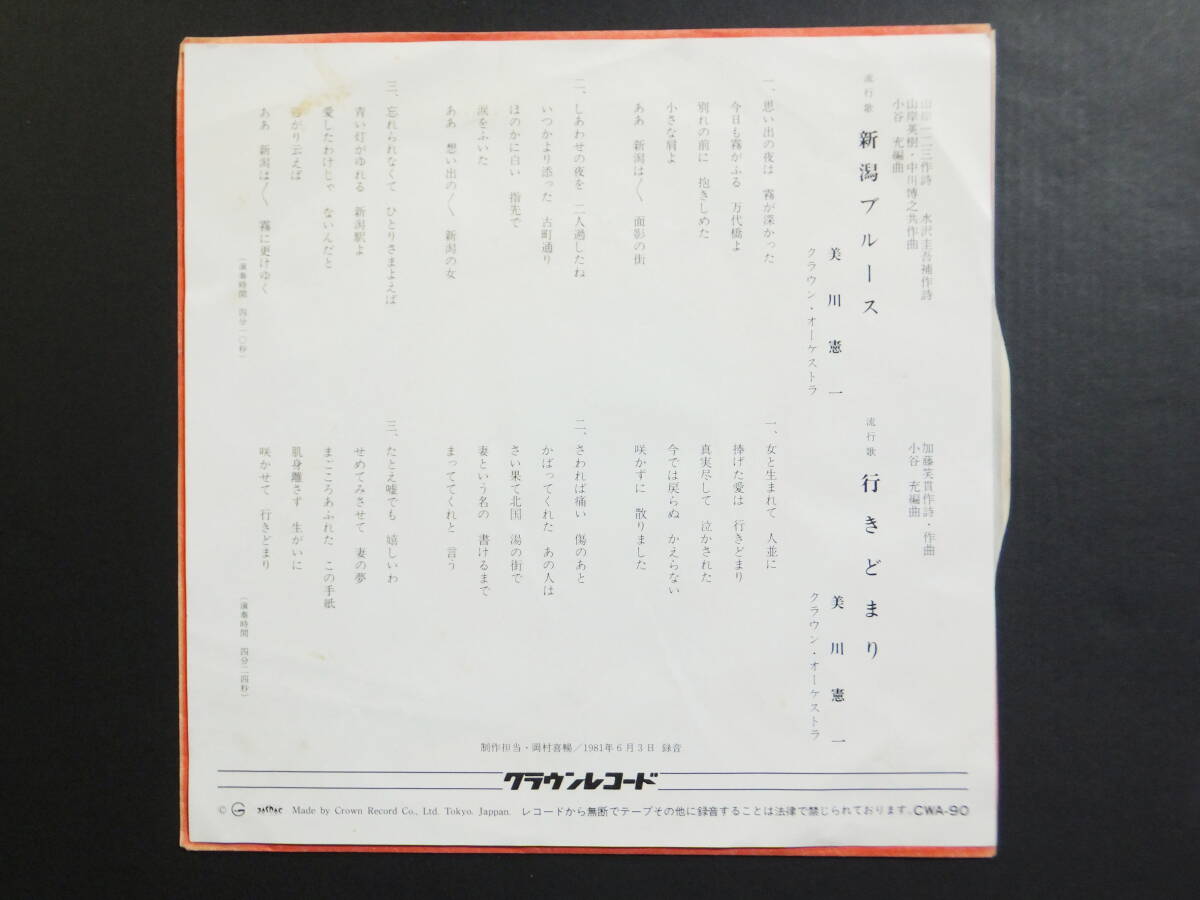 山岸一二三作詩 水沢圭吾補作詩
山岸英樹・中川博之共作曲
小谷 充編曲
流行歌 新潟ブルース
美川憲一
クラウン・オーケストラ
一、思い出の夜は 霧が深かった
今日も霧がふる 万代橋よ
別れの前に 抱きしめた
小さな肩よ
ああ 新潟は〳〵 面影の街
二、しあわせの夜を 二人過したね
いつかより添った 古町通り
ほのかに白い 指先で
涙をふいた
ああ 想い出の〳〵 新潟の女
三、忘れられなくて ひとりさまよえば
青い灯がゆれる 新潟駅よ
愛したわけじゃ ないんだと
がり云えば
ああ 新潟は〳〵 霧に更けゆく
(演奏時間 四分一〇秒)
加藤笑貫作詩・作曲
小谷 充編曲
流行歌 行きどまり
美川憲一
クラウン・オーケストラ
一、女と生まれて 人並に
捧げた愛は 行きどまり
真実尽して 泣かされた
今では戻らぬ かえらない
咲かずに 散りました
二、さわれば痛い 傷のあと
かばってくれた あの人は
さい果て北国 湯の街で
妻という名の 書けるまで
まっててくれと 言う
三、たとえ嘘でも 嬉しいわ
せめてみさせて 妻の夢
まごころあふれた この手紙
肌身離さず 生がいに
咲かせて 行きどまり
(演奏時間 四分二四秒)
制作担当・岡村喜暢/1981年6月3日 録音
クラウンレコード
© G JASRAC Made by Crown Record Co., Ltd. Tokyo. Jappan. レコードから無断でテープその他に録音することは法律で禁じられております。CWA-90